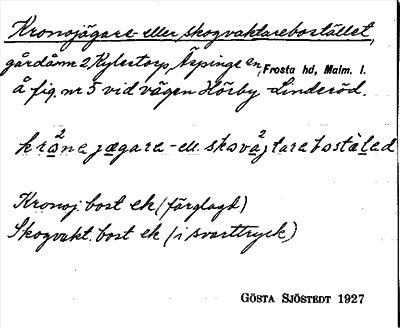 Kronojägare- eller skogvaktarebostället,
gårdåmn 2, Kylestorp, Äspinge sn, Frosta hd, Malm. l.
å fig. nr 5 vid vägen Hörby-Linderöd.
krona jægara- ell. skova tarebostæled
Kronoj. bost ek (färglagd)
Skogvakt. bost ek (i svarttryck)
GÖSTA SJÖSTEDT 1927